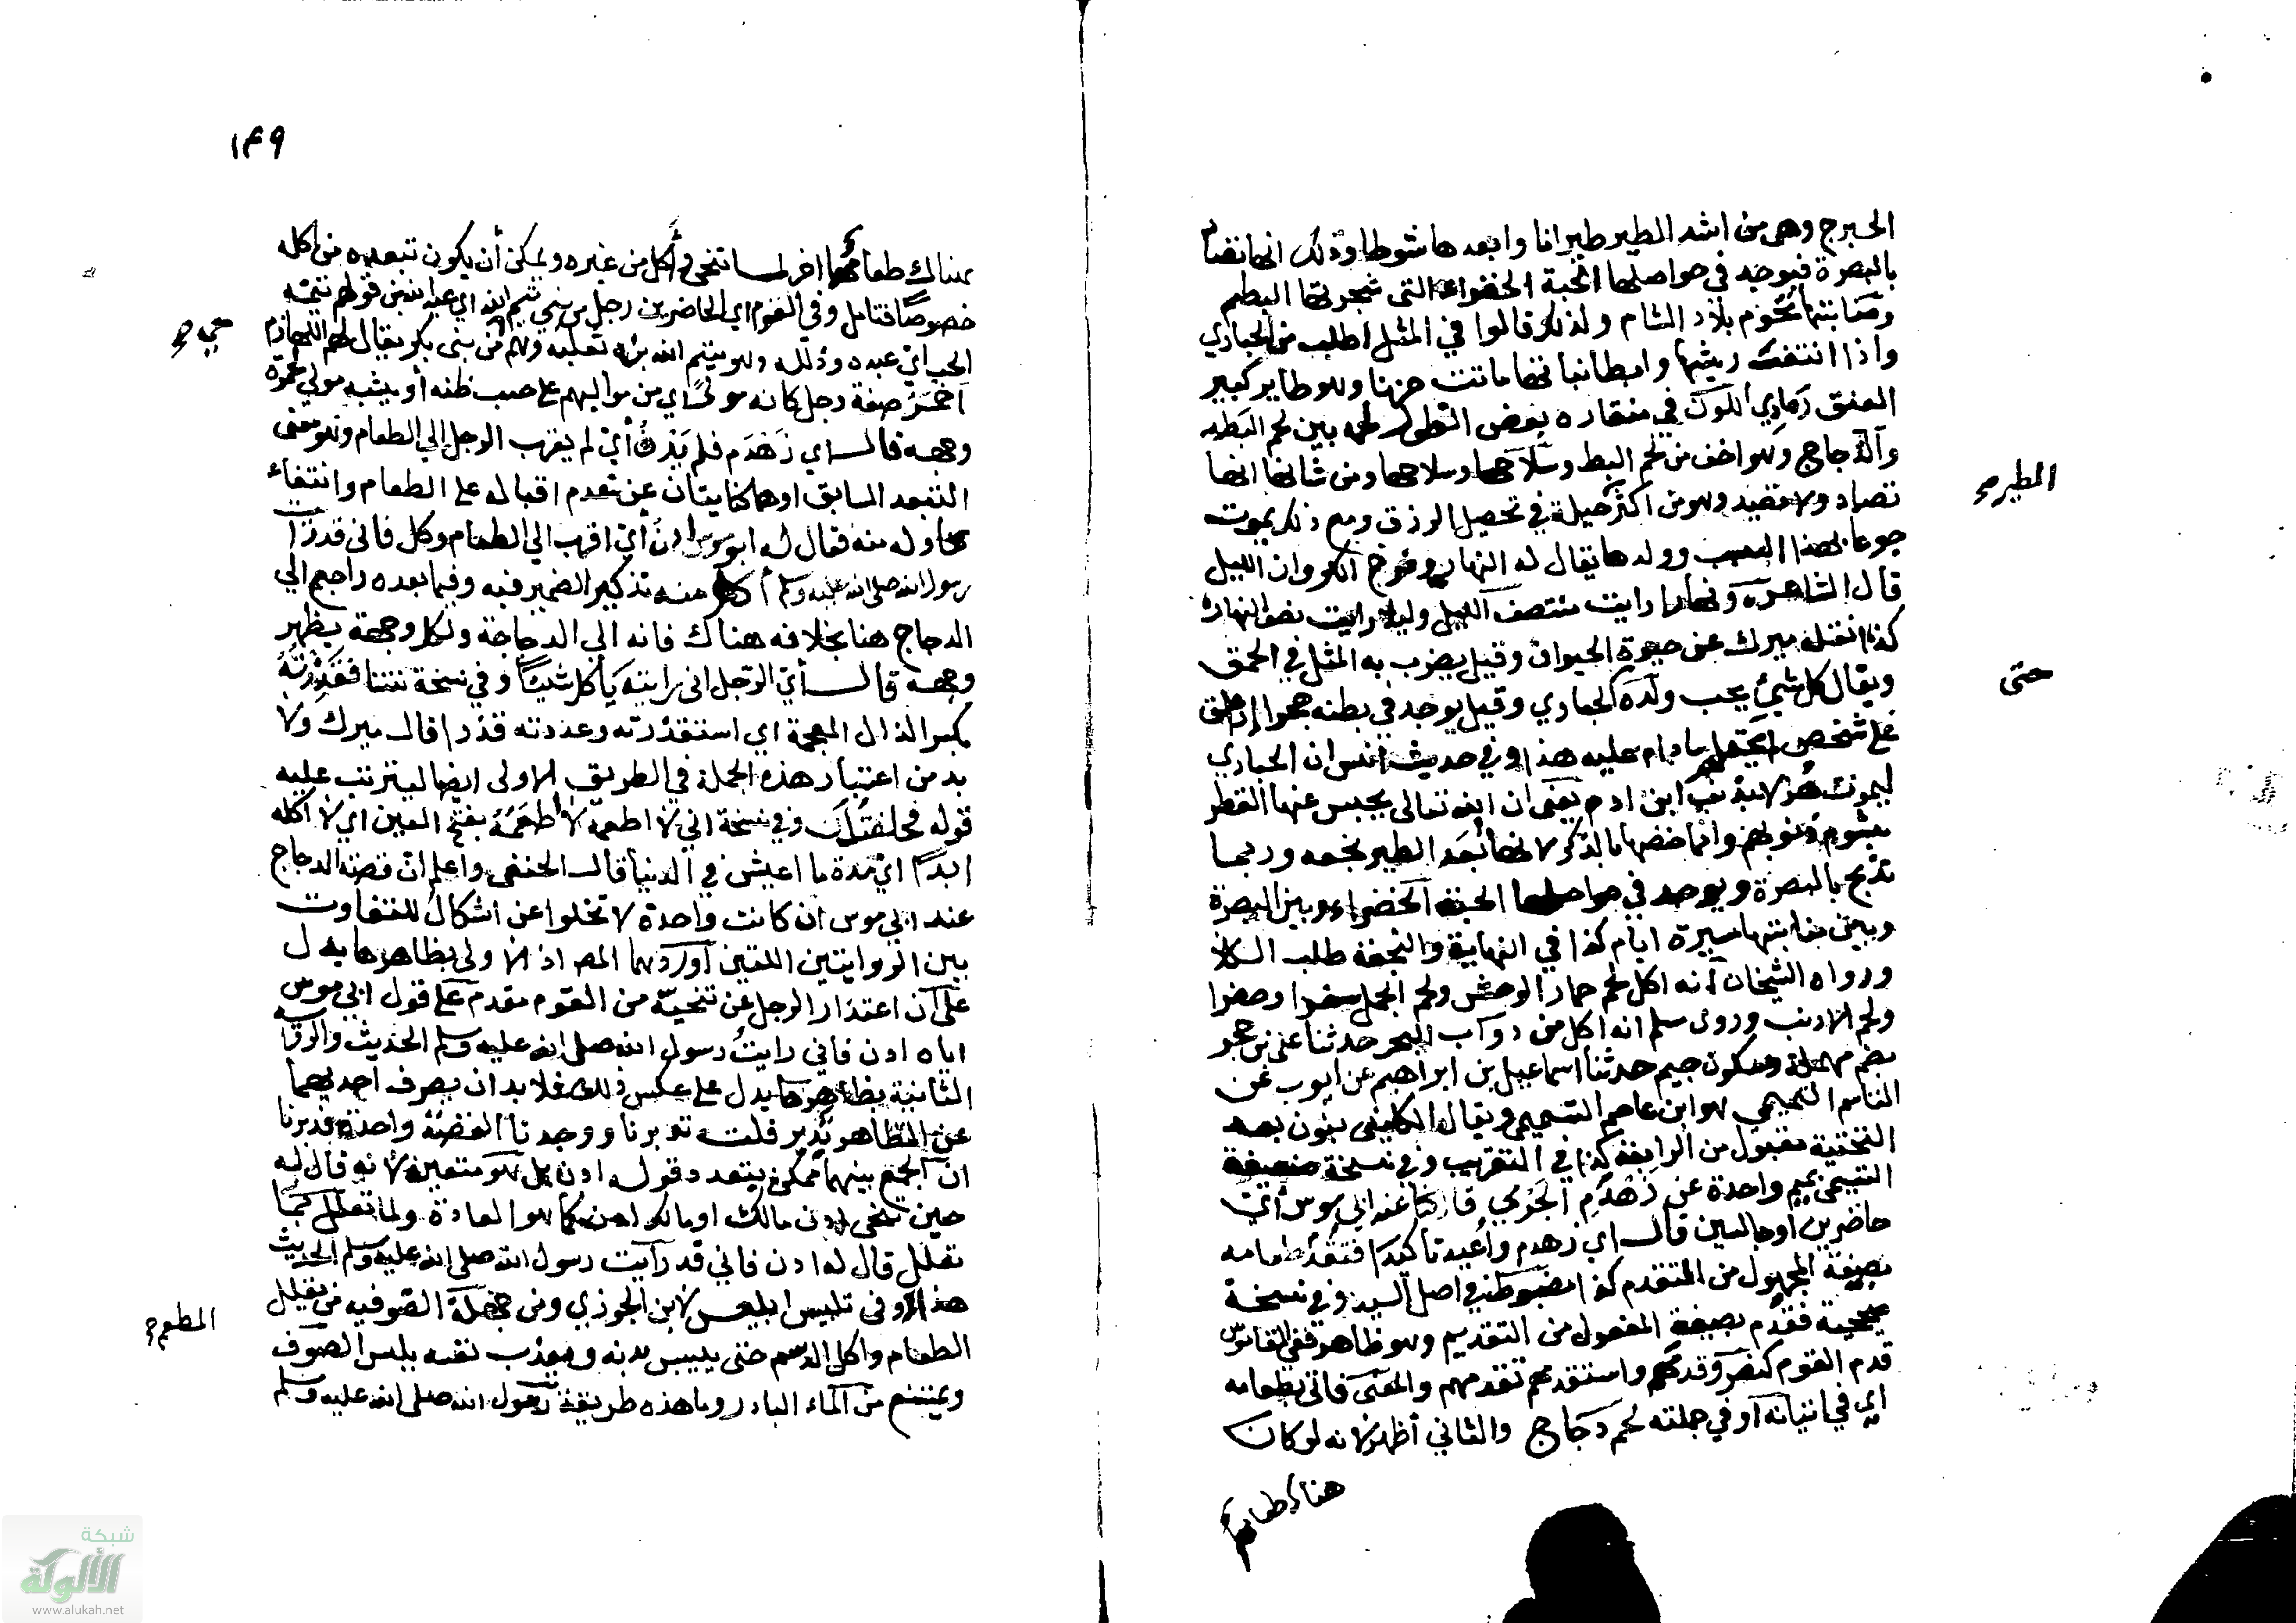 الحبرج وهي من اشد الطير طيرانا وابعدها شوطا وذلك انها تصاد
بالبصرة فيوجد في حواصلها الحبة الخضراء التي شجرتها البطم
ومنابتها تخوم بلاد الشام ولذلك قالوا في المثل اطلب من الحباري
واذا انتفت ريشها وابطا نباتها ماتت حزنا وهو طاير كبير
العنق رمادي اللون في منقاره بعض الطول لحمه بين لحم البط
والدجاج وهو اخف من لحم البط وسلاحها وسلاحها ومن شانها انها
تصاد ولا تصيد وهو من اكثر حيلة في تحصيل الرزق ومع ذلك يموت
المطير صح
جوعا بهذا السبب وولدها يقال له النهار وفرخ الكروان الليل
قال الشاعر ونهارا رايت منتصف الليل وليلا رايت نصف النهار
كذا نقله ميرك عن حيوة الحيوان وقيل يضرب به المثل في الحمق
ويقال كل شيء يحب ولده حتى الحباري وقيل يوجد في بطنه حجر اذا علق
حتى
على شخص لم يحتلم ما دام عليه هذا وفي حديث انس ان الحباري
ليموت هزلا بذنب ابن ادم يعني ان الله تعالى يحبس عنها القطر
بشوم ذنوبهم وانما خصها بالذكر لانها ابعد الطير نجعة وربما
تذبح بالبصرة ويوجد في حواصلها الحبة الخضراء وبين البصرة
وبين منابتها مسيرة ايام كذا في النهاية والنجعة طلب الكلا
ورواه الشيخان انه اكل لحم حمار الوحش ولحم الجمل سفرا وحضرا
ولحم الارنب وروى مسلم انه اكل من دواب البحر حدثنا علي بن حجر
بضم مهملة وسكون جيم حدثنا اسماعيل بن ابراهيم عن ايوب عن
القاسم التميمي هو ابن عاصم التميمي ويقال الكليني بنون بعد
التحتية مقبول من الرابعة كذا في التقريب وفي نسخة ضعيفة
التيمي بميم واحدة عن زهدم الجرمي قال كنا عند ابي موسى اي
حاضرين او جالسين قال اي زهدم واعيد تاكيدا فتقدم طعامه
بصيغة المجهول من المتقدم كذا مضبوط في اصل السيد وفي نسخة
صحيحة فقدم بصيغة المفعول من التقديم وهو ظاهر ففي القاموس
قدم القوم كنصر وقدمهم واستقدمهم تقدمهم والمعنى فاتى بطعامه
اي في اثنائه او في جملته لحم دجاج والثاني اظهر لانه لو كان
هناك طعاما
١٤٩
هناك طعاما اخر لما تنحى واكل من غيره ويمكن أن يكون تبعده من اكله
خصوصا فتامل وفي القوم اي الحاضرين رجل من بني تيم الله اي عبد الله من قولهم تيمه
الحب اي عبده وذلله وهو تيم الله بن ثعلبة وهم من بني بكر يقال لهم اللهازم
حي صح
احمر صفة رجل كانه مولى اي من مواليهم على حسب ظنه او يشبه مولى لحمرة
وجهه قال اي زهدم فلم يدن أي لم يقرب الرجل الي الطعام وهو معنى
التبعد السابق او هما كنايتان عن عدم اقباله على الطعام وانتفاء
محاوله منه فقال له ابو موسى ادن أي اقرب الي الطعام وكل فاني قد رأيت
رسول الله صلى الله عليه وسلم أكل منه تذكير الضمير فيه وفيما بعده راجع الي
الدجاج هنا بخلافه هناك فانه الي الدجاجة ولكل وجهة يظهر
وجهه قال أي الرجل اني رايته يأكل شيئا وفي نسخة نتنا فقذرته
بكسر الذال المعجمة اي استقذرته وعددته قذرا قال ميرك ولا
بد من اعتبار هذه الجملة في الطريق الاولى ايضا ليترتب عليه
قوله فحلفت أن وفي نسخة اني لا اطعمه لا أطعمه بفتح العين اي لا اكله
ابدا اي مدة ما اعيش في الدنيا قال الحنفي واعلم ان قصة الدجاج
عند ابي موسى ان كانت واحدة لا تخلوا عن اشكال للتفاوت
بين الروايتين اللتين اوردهما المص اذ الاولى بظاهرها يدل
على ان اعتذار الرجل عن تنحيه من القوم مقدم على قول ابي موسى
اياه ادن فاني رايت رسول الله صلى الله عليه وسلم الحديث والرواية
الثانية بظاهرها يدل على عكس ذلك فلا بد ان يصرف احديهما
عن الظاهر تدبر قلت تدبرنا ووجدنا القضية واحدة فدبرنا
ان الجمع بينهما ممكن بتعدد قوله ادن بل هو متعين لانه قال له
حين تنحى ادن مالك او مالك ادن كما هو العادة ولما تعلل بما
تعلل قال له ادن فاني قد رأيت رسول الله صلى الله عليه وسلم الحديث
هذا وفي تلبيس ابليس لابن الجوزي ومن جهلة الصوفيه من يقلل
المطعم صح
الطعام واكل الدسم حتى ييبس بدنه ويعذب نفسه بلبس الصوف
ويمتنع من الماء البارد وما هذه طريقة رسول الله صلى الله عليه وسلم
شبكة
الألوكة
www.alukah.net